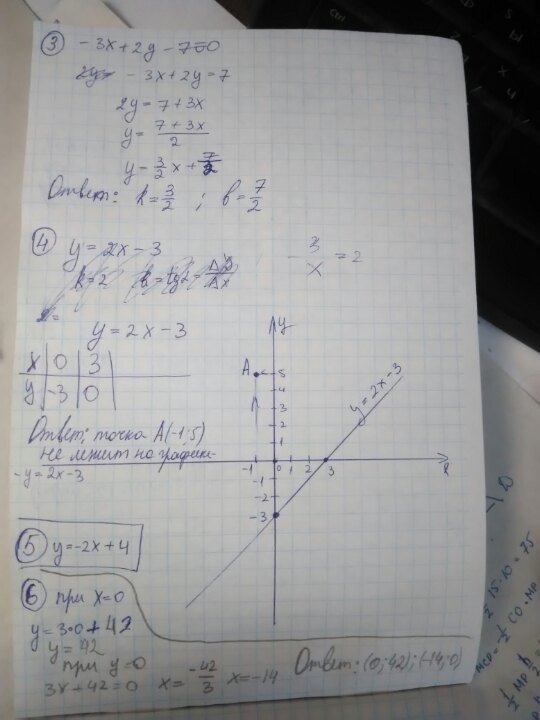 ③ -3x+2y-7=0
-3x+2y=7
2y=7+3x
y=7+3x/2
y=3/2x+7/2
Ответ: k=3/2 ; b=7/2
④ y=2x-3
k=2
-3/x=2
y=2x-3
x 0 3
y -3 0
Ответ: точка A(-1;5)
не лежит на график
-y=2x-3
y
A 5
4
3
2
1
-1 0 1 2 3 x
-1
-2
-3
y=2x-3
⑤ y=-2x+4
⑥ при x=0
y=3·0+42
y=42
при y=0
3x+42=0 x=-42/3 x=-14
Ответ: (0;42);(-14;0)
\ 20
15·10=75
CO·MP